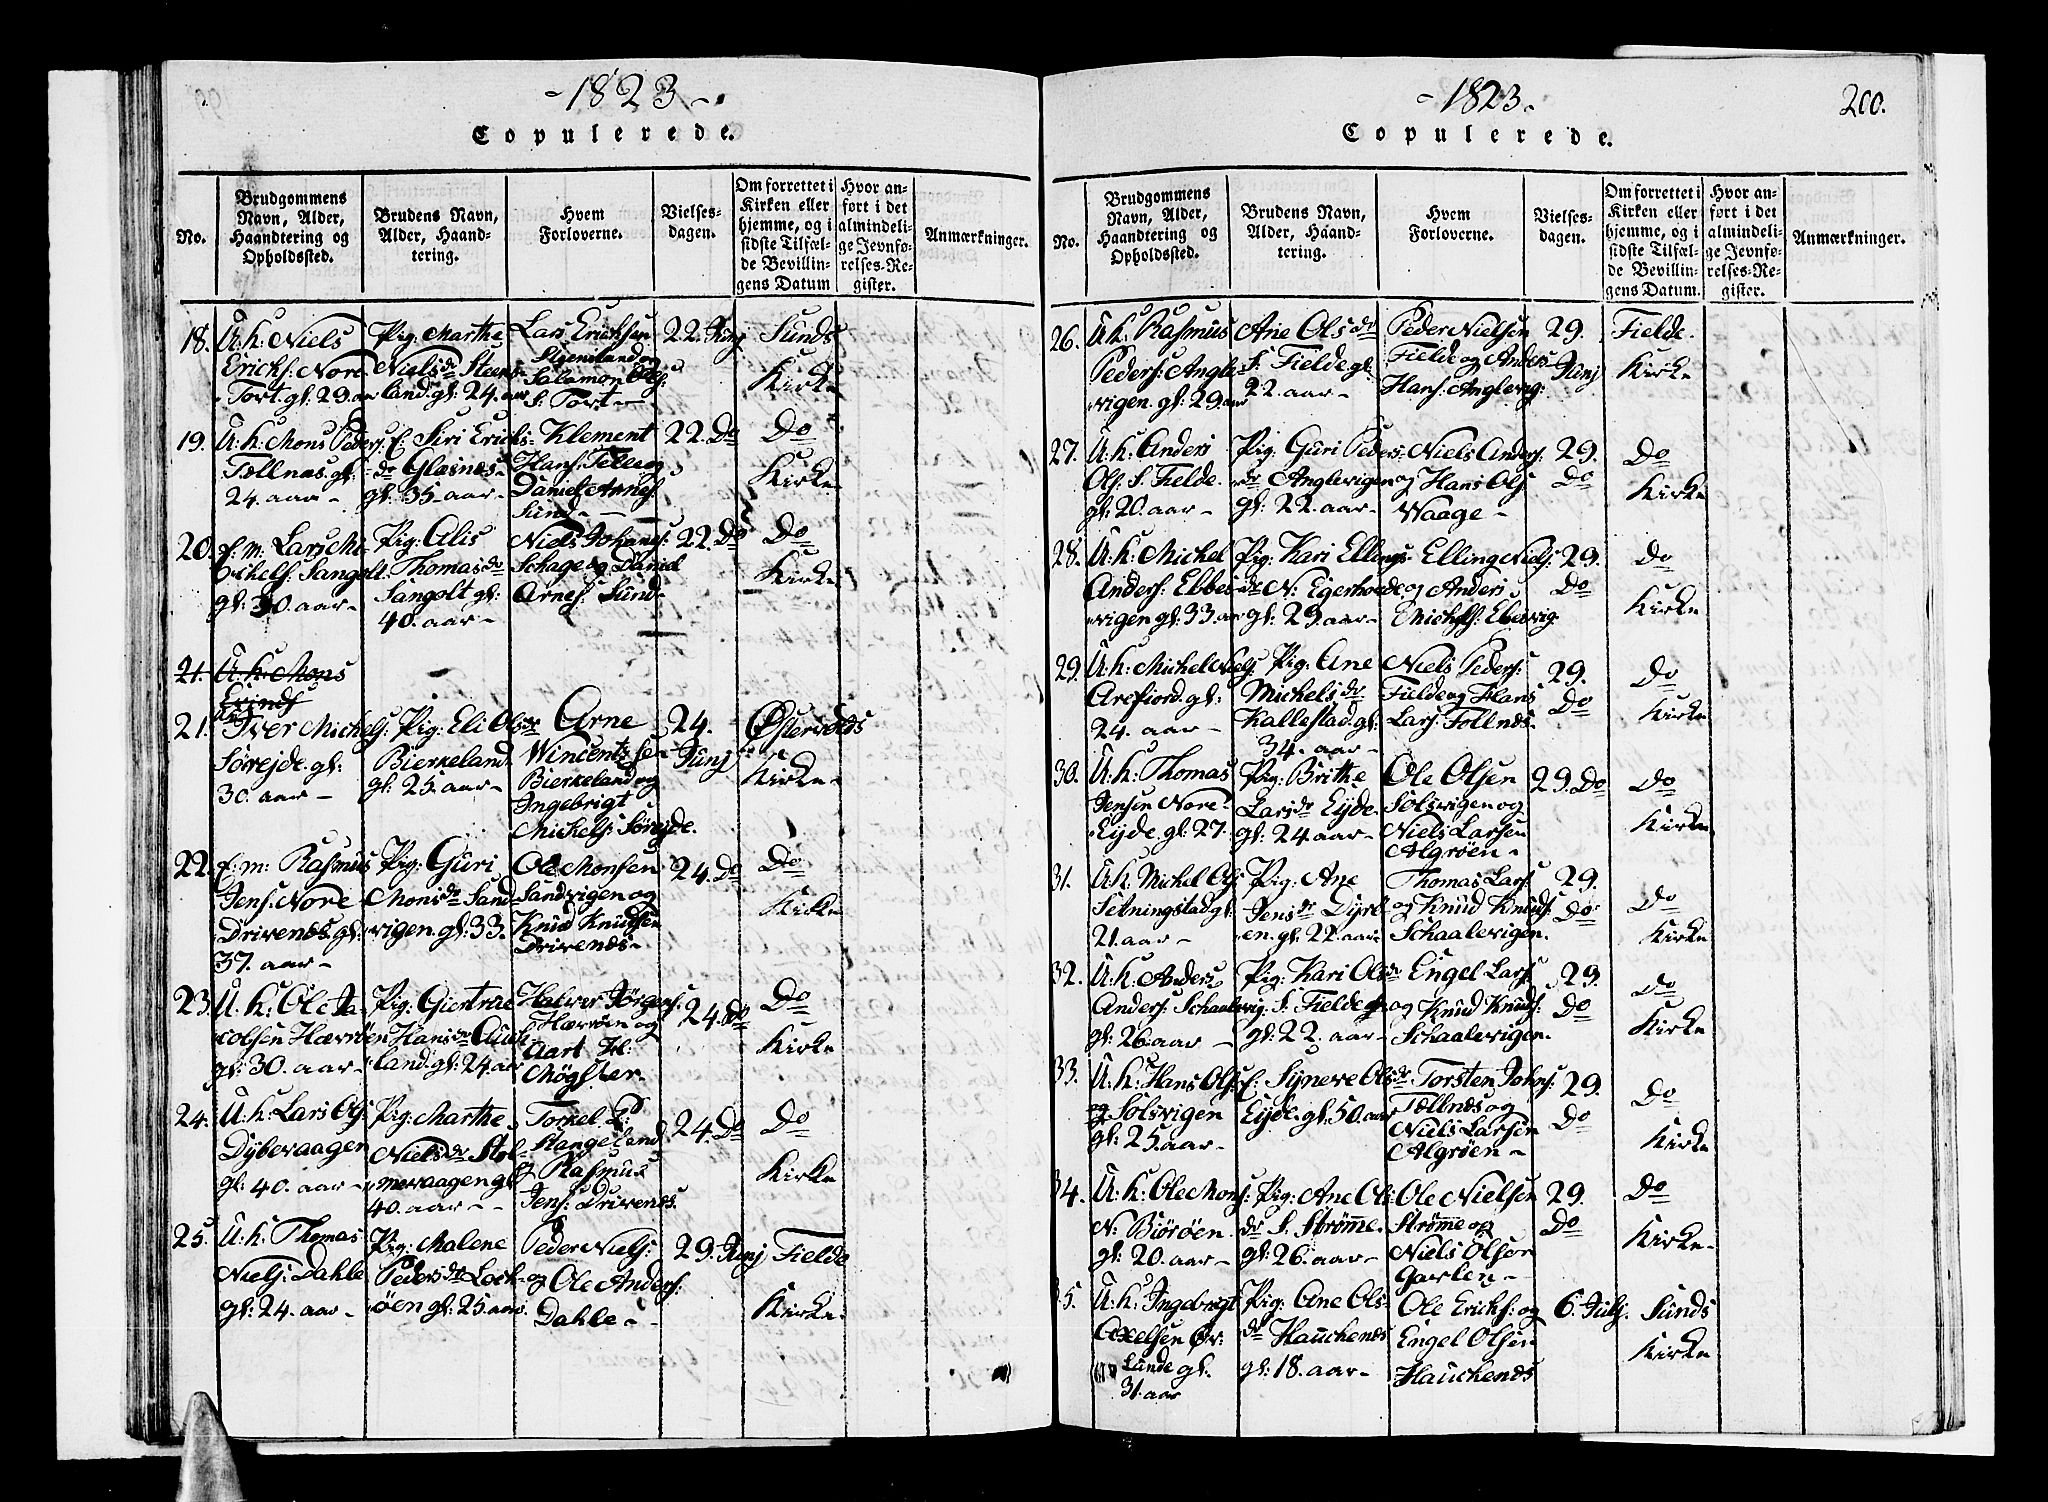 - 1823 -.
Copulerede.
No.
Brudgommens
Navn, Alder,
Haandtering og
Opholdssted.
Brudens Navn,
Alder, Haand-
tering.
Hvem
Forloverne.
Vielses-
dagen.
Om forrettet i
Kirken eller
hjemme, og i
sidste Tilfæl-
de Bevillin-
gens Datum
Hvor an-
ført i det
almindeli-
ge Jevnfø-
relses-Re-
gister.
Anmærkninger.
18. U: k: Niels
Ericks: Nore
Tort. gl: 29 aar
Pig: Marthe
Niels dr Steens-
land. gl: 24. aar
Lars Ericksen
Steensland og
Salamon Ols:
S: Tort —
22. Junj
Sunds
Kirke
19. U. k: Mons Peders:
Tællnæs. gl:
24. aar —
E: Siri Ericks-
dr Glæsnes
gl: 35 aar —
Klement
Hans: Telle og
Daniel Arnes:
Sund —
22. Do
Do
Kirke
20. E: m: Lars Mi-
chels: Sangolt
gl: 30. aar —
Pig: Alis
Thomas dr
Sangolt gl:
40. aar —
Niels Johanes:
Schage og Daniel
Arnes: Sund —
22. Do
Do
Kirke
21. U. k: Mons
Erinds
21. Iver Michels:
Sørejde. gl:
30. aar —
Pig: Eli Ols dr
Bierkeland
gl: 25. aar —
Arne
Wincentzsen
Bierkeland og
Ingebrigt
Michels: Sørejde.
24.
Junj
Østervolds
Kirke
22. E: m: Rasmus
Jens: Nore
Drivenæs. gl:
37. aar —
Pig: Guri
Mons dr Sand-
vigen. gl: 33.
Ole Monsen
Sandvigen og
Knud Knudsen
Drivenæs —
24. Do
Do
Kirke
23. U. k: Ole Ja-
cobsen Hævrøen
gl: 30. aar —
Pig: Giertrue
Hans dr Auk-
land. gl: 24. aar
Halvor Jørgens:
Hævrøen og
Aart H:
Møgster.
24. Do
Do
Kirke
24. U. k: Lars Ols:
Dybevaagen
gl: 40. aar —
Pig: Marthe
Niels dr Stol-
mevaagen gl:
40. aar —
Torkel P:
Stangeland
og Rasmus
Jens: Drivenæs.
24. Do
Do
Kirke
25. U. k: Thomas
Niels: Dahle
gl: 24. aar —
Pig: Malene
Peders dr Lock-
øen gl: 25. aar
Peder Niels:
og Ole Anders:
Dahle —
29. Junj
Fielde
Kirke
- 1823 -
200.
Copulerede.
No.
Brudgommens
Navn, Alder,
Haandtering og
Opholdssted.
Brudens Navn,
Alder, Haand-
tering.
Hvem
Forloverne.
Vielses-
dagen.
Om forrettet i
Kirken eller
hjemme, og i
sidste Tilfæl-
de Bevillin-
gens Datum.
Hvor an-
ført i det
almindeli-
ge Jevnfø-
relses-Re-
gister.
Anmærkninger.
26. U. k: Rasmus
Peders: Angle-
vigen. gl: 29. aar
Ane Ols dr
S: Fielde gl:
22 aar —
Peder Nielsen
Fielde og Anders
Hans: Anglevig:
29.
Junj
Fielde.
Kirke
27. U. k: Anders
Ols: S. Fielde.
gl: 20. aar —
Pig: Guri Peders-
dr Anglevigen
gl: 22. aar —
Niels Anders:
og Hans Ols:
Waage —
29.
Do
Do
Kirke
28. U. k: Michel
Anders: Ebbes-
vigen gl: 33. aar
Pig: Kari Ellings-
dr N: Egerhovde
gl: 29. aar —
Elling Niels:
og Anders
Michels: Ebesvig.
29.
Do
Do
Kirke
29. U. k: Michel Niels:
Arefiord. gl:
24. aar —
Pig: Ane
Michels dr
Kallestad. gl:
34. aar —
Niels Peders:
Fielde og Hans
Lars: Follnæs.
29.
Do
Do
Kirke
30. U. k: Thomas
Jensen Nore-
Eyde. gl: 27.
Pig: Brithe
Lars dr Eyde.
gl: 24 aar —
Ole Olsen
Solsvigen og
Niels Larsen
Algrøen —
29. Do
Do
Kirke
31. U. k: Michel Ols:
Setningstad gl:
21. aar —
Pig: Ane
Jens dr Dyrø-
en. gl: 22. aar
Thomas Lars:
og Knud Knuds:
Schaalevigen.
29.
Do
Do
Kirke
32. U. k: Anders
Anders: Schaalevig.
gl: 26. aar
Pig: Kari Ols dr
S. Fielde
gl: 22. aar —
Engel Lars:
og Knud Knuds:
Schaalevigen.
29.
Do
Do
Kirke
33. U. k: Hans Ols:
Solsvigen
gl: 25. aar —
E: Synneve Ols dr
Eyde. gl: 50. aar
Torsten Johns:
Tællnæs og
Niels Larsen
Algrøen —
29.
Do
Do
Kirke
34. U. k: Ole Mons:
N: Biørøen
gl: 20. aar —
Pig: Ane Ols-
dr S. Strømme.
gl: 26. aar —
Ole Nielsen
Strømme og
Niels Olsen
Garlen —
29.
Do
Do
Kirke
35. U. k: Ingebrigt
Axelsen Ør-
Lunde gl:
31. aar
Pig: Ane Ols-
dr Hauckenæs
gl: 18. aar —
Ole Ericks: og
Engel Olsen
Hauckenæs
6. Julj.
Sunds
Kirke